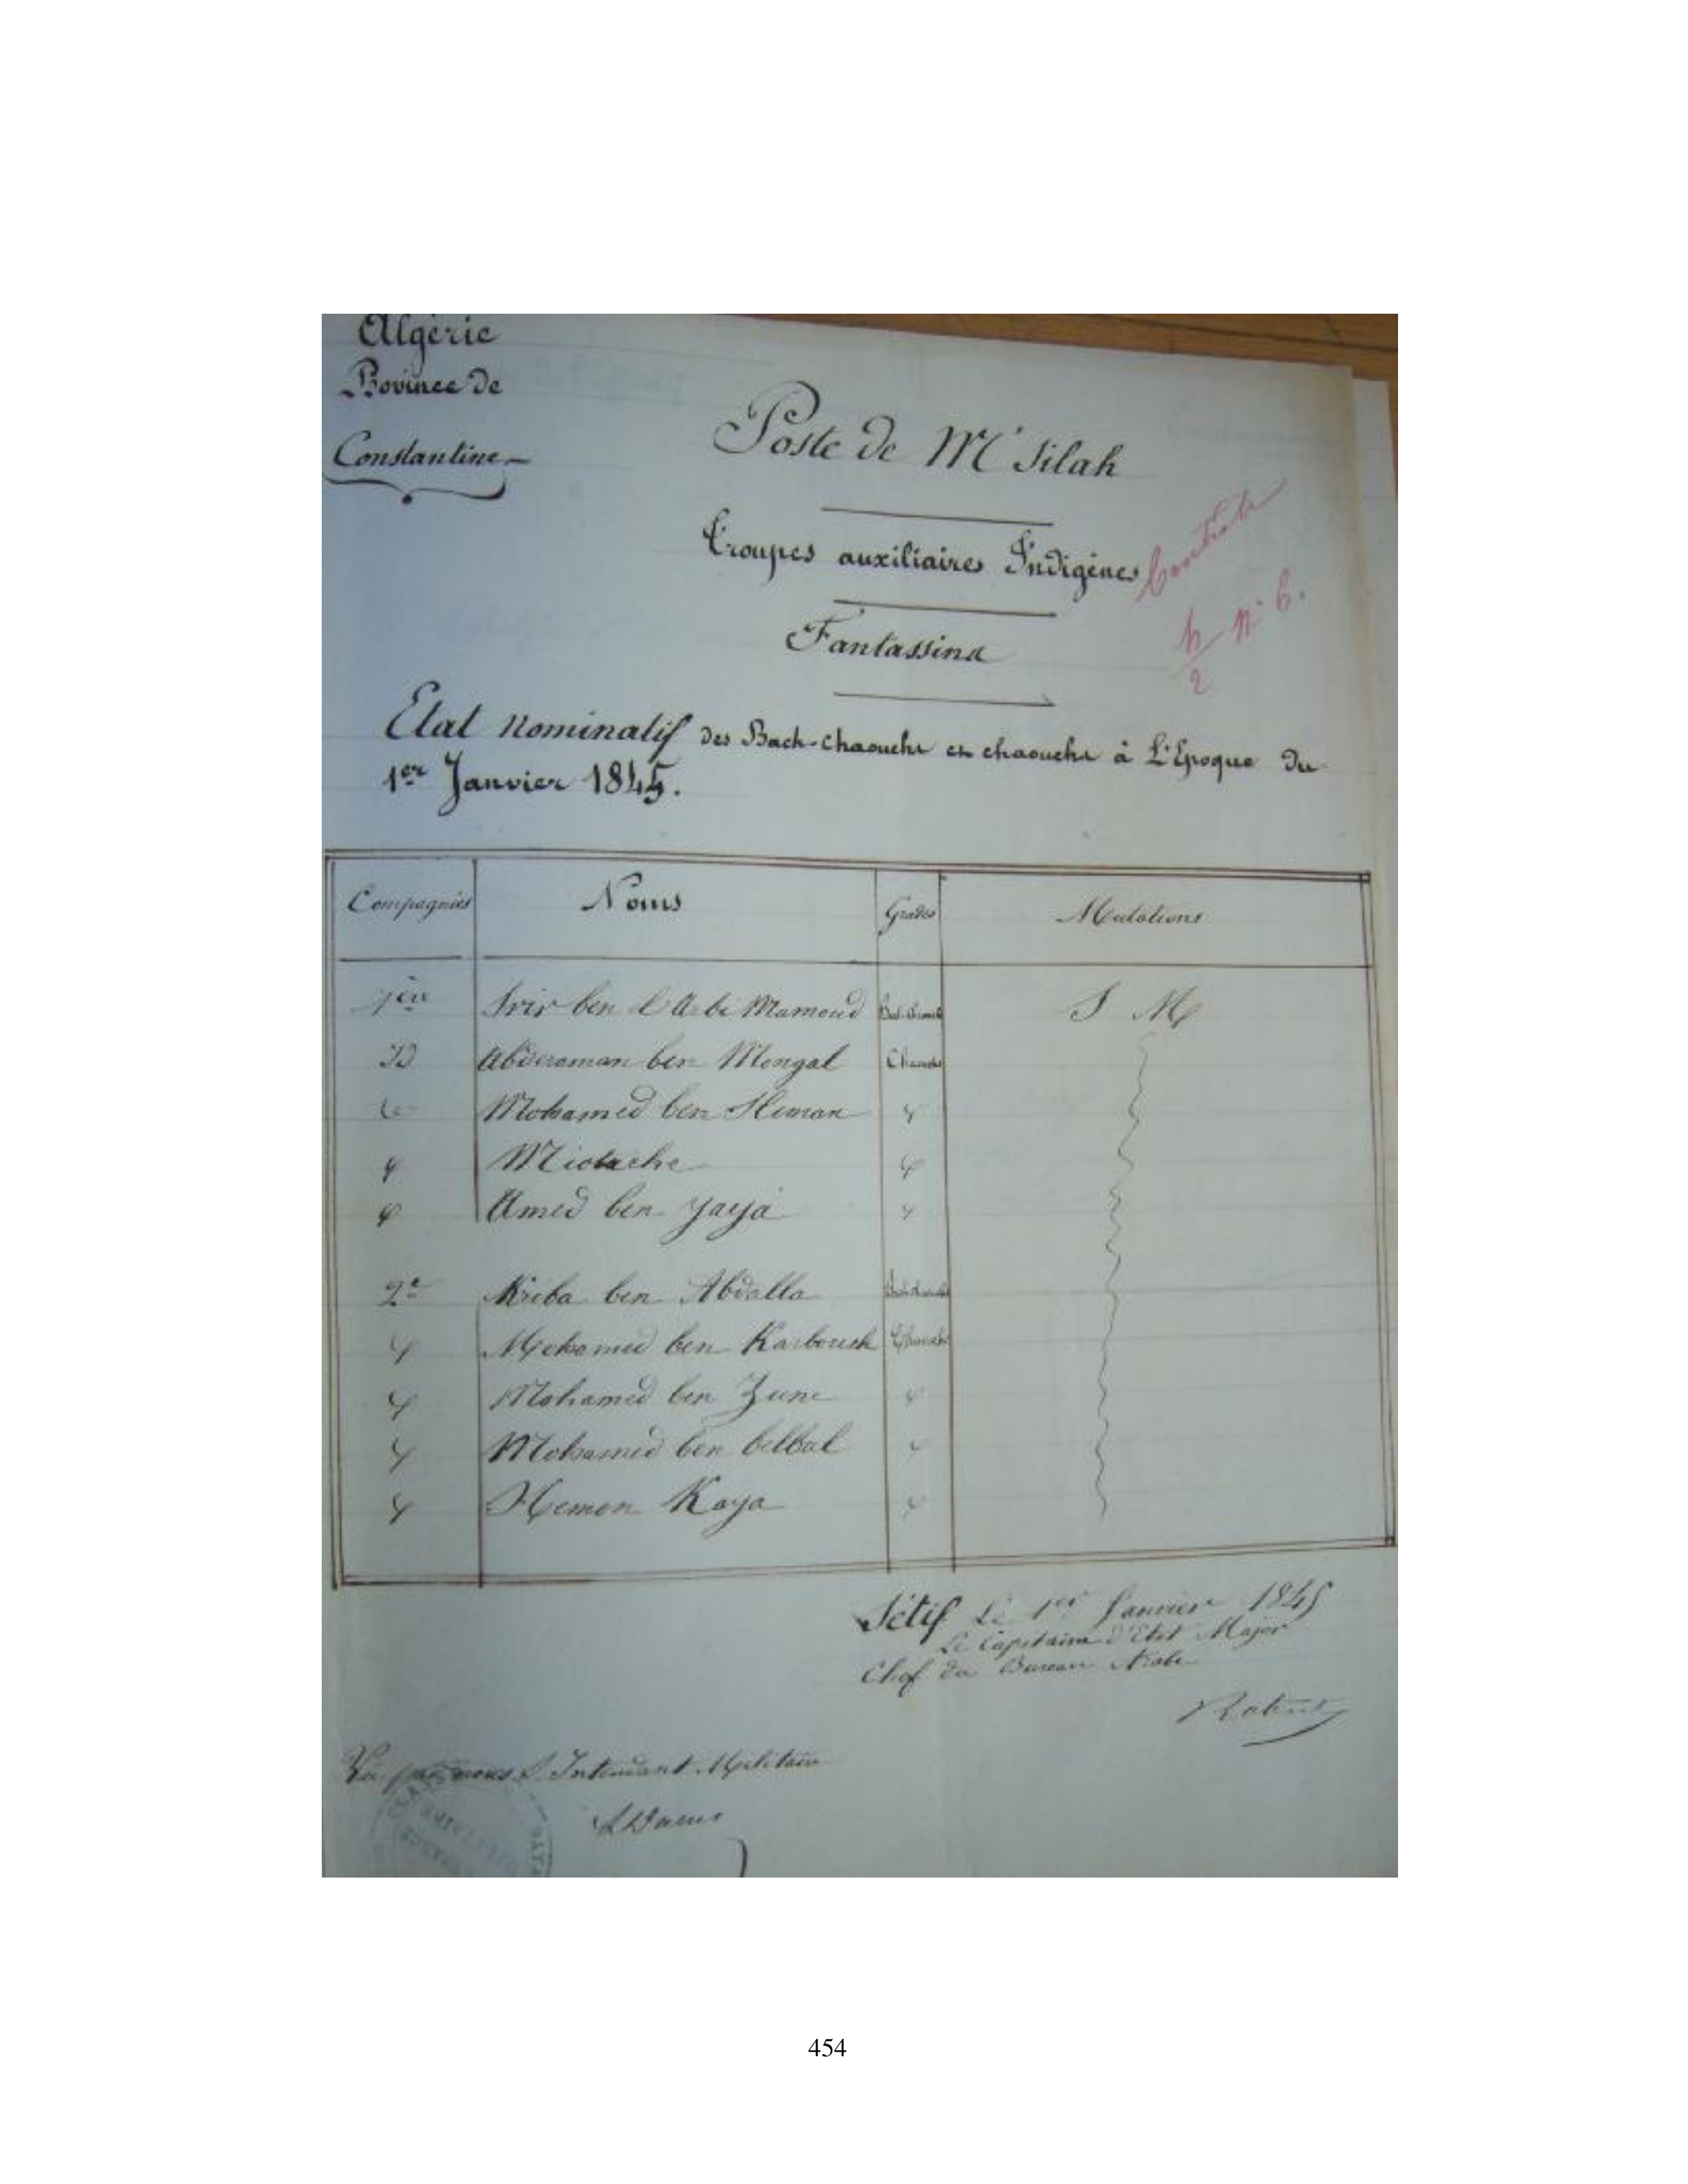 Algérie
Province de
Constantine
Poste de M'Silah
Troupes auxiliaires Indigènes
Contrôle
h/2 n° 6.
Fantassins
Etat nominatif des Bach-chaouchs et chaouchs à L'Epoque du
1er Janvier 1845.
Compagnies Noms Grades Mutations
1ère ben Mamoud Bach-chaouch S M
Id Abderaman ben Mongal Chaouchs
Mohamed ben Sliman "
" "
" Amed ben yaya "
2e Kriba ben Abdalla Bach-chaouch
" Mohamed ben Karbouch Chaouchs
" Mohamed ben Zune "
" Mohamed ben belbal "
" Hemen Kaya "
Sétif Le 1er Janvier 1845
Le Capitaine d'Etat Major
Chef du Bureau Arabe
Vu par nous L'Intendant Militaire
454